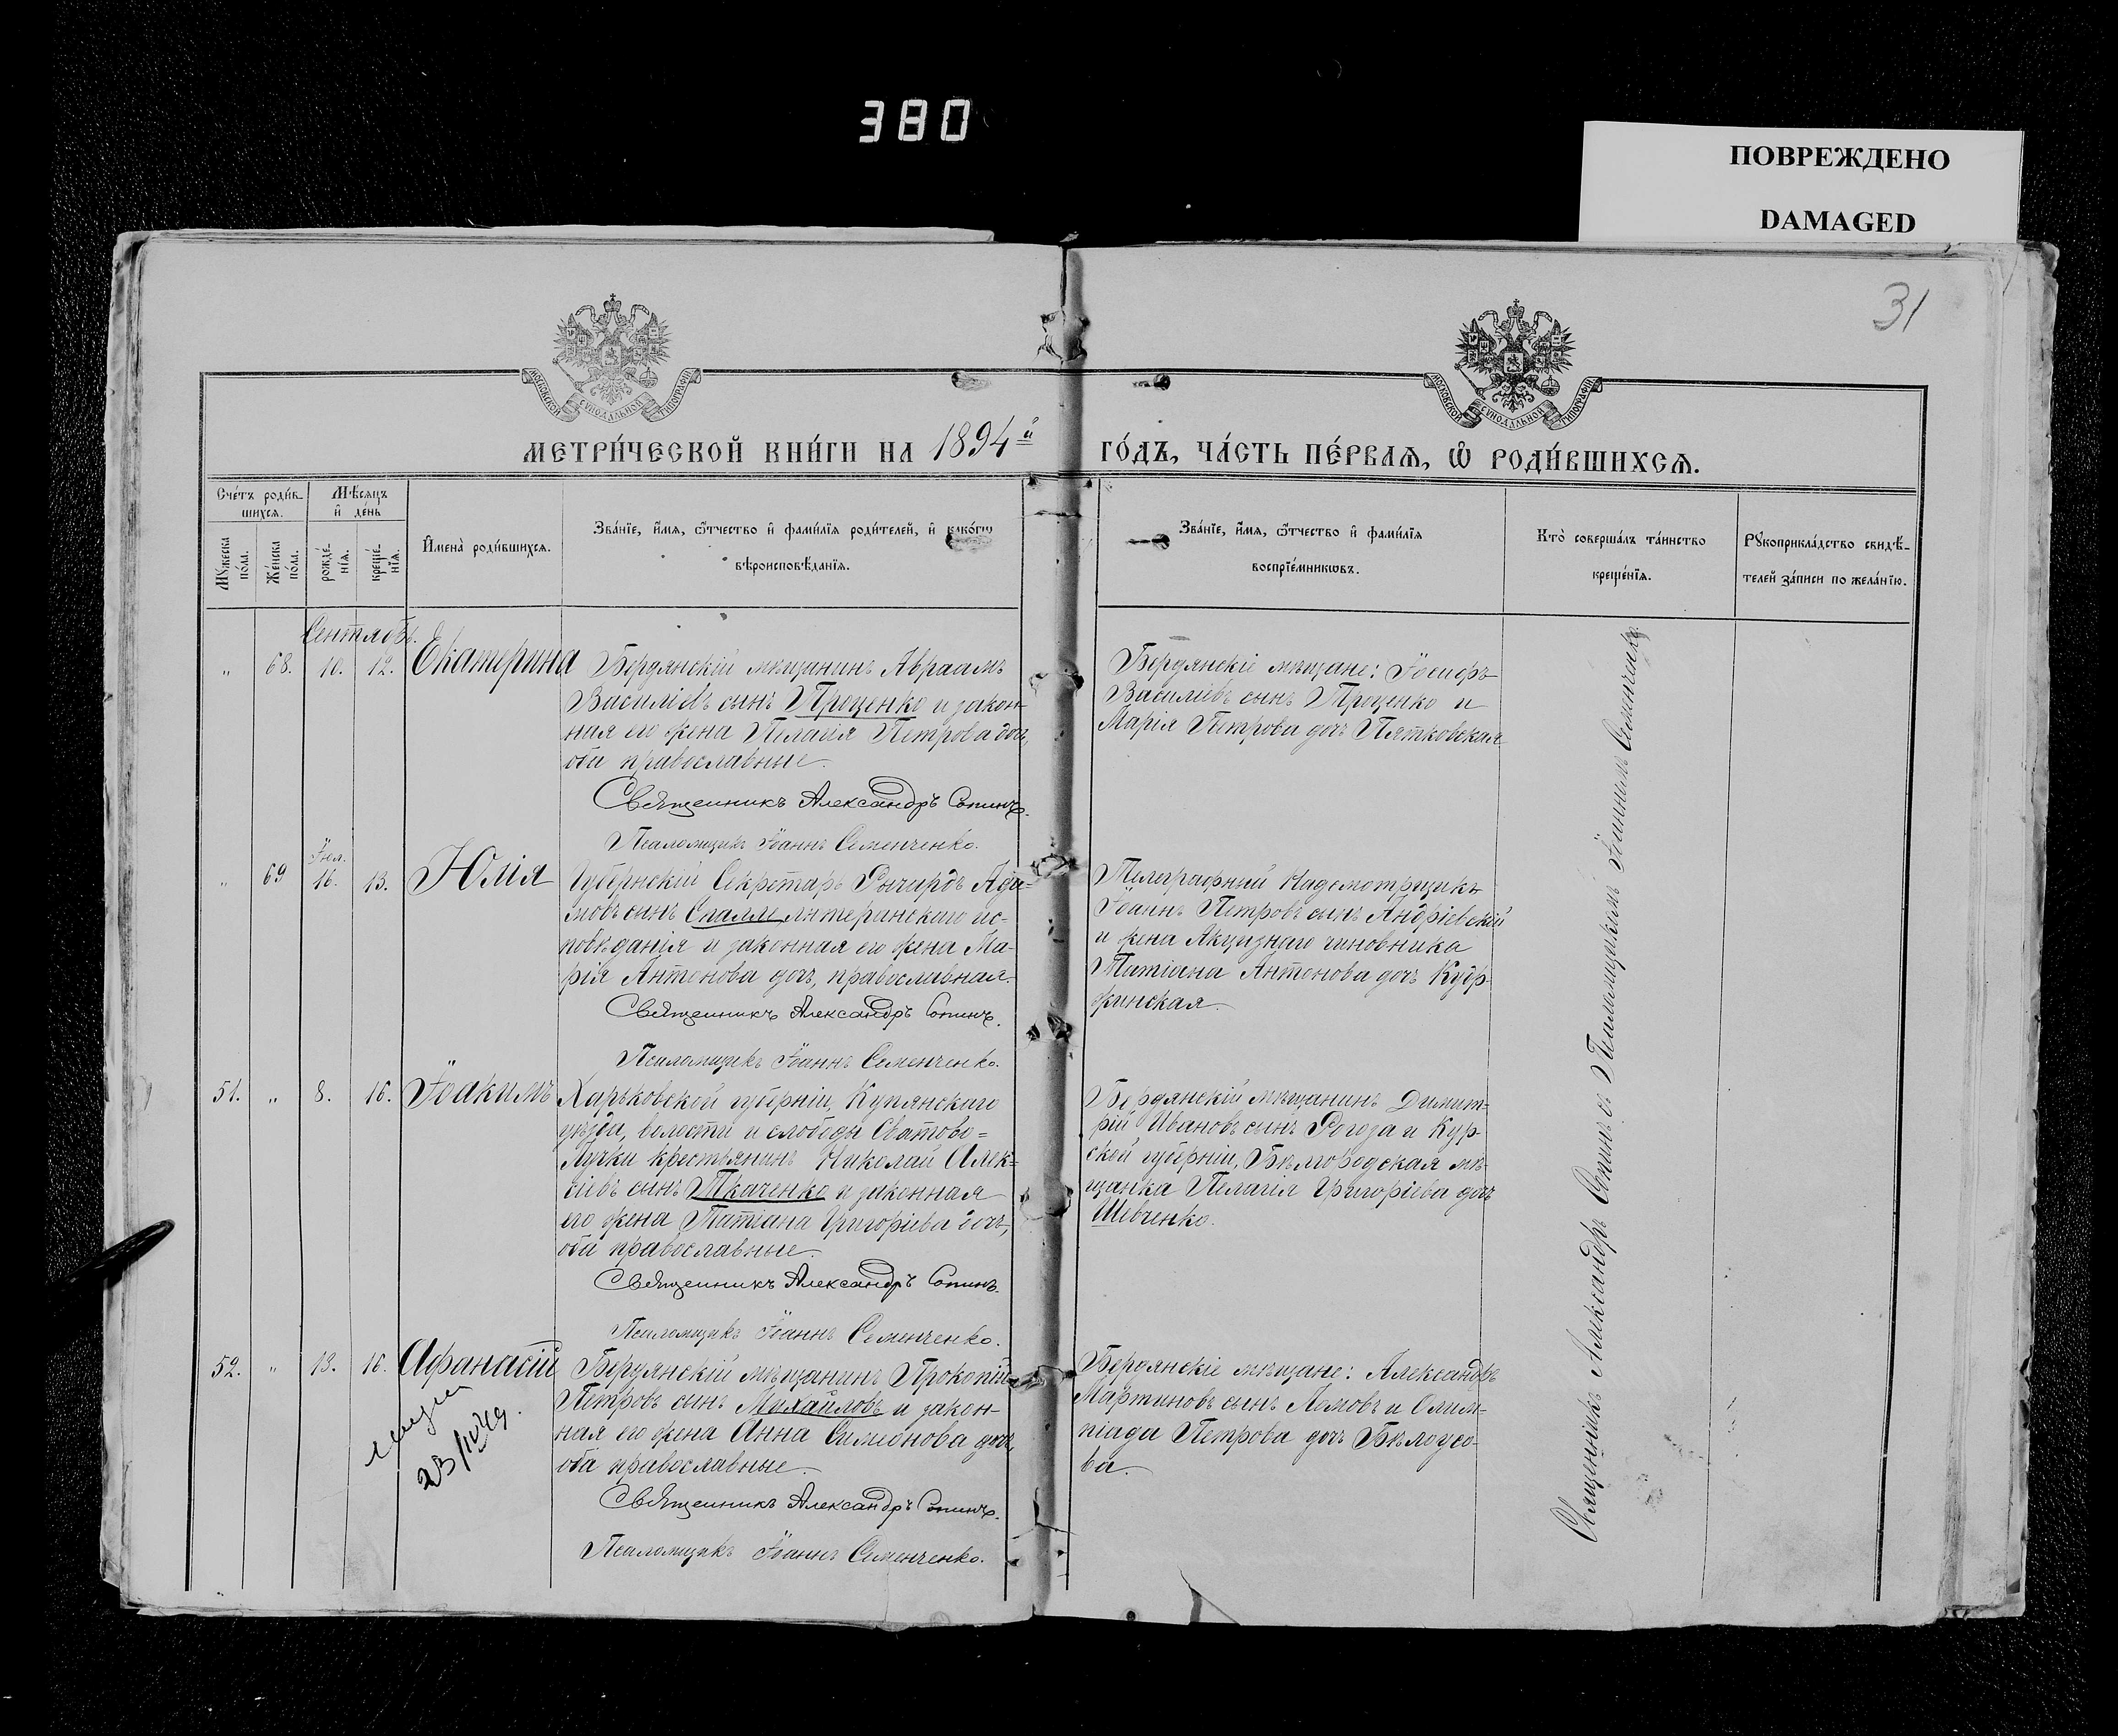 380
ПОВРЕЖДЕНО
DAMAGED
31
МОСКОВСКОЙ СѴНОДАЛЬНОЙ ТИПОГРАФІИ
МОСКОВСКОЙ СѴНОДАЛЬНОЙ ТИПОГРАФІИ
МЕТРИ́ЧЕСКОЙ КНИ́ГИ НА 1894й ГО́ДЪ, ЧА́СТЬ ПЕ́РВАѦ, Ѡ РОДИ́ВШИХСѦ.
Сче́тъ роди́в-
шихсѧ.
Мѣ́сѧцъ
и҆ де́нь
Мꙋ́жеска по́ла.
Же́нска по́ла.
рожде́-
нїѧ.
креще́-
нїѧ.
И҆мена̀ роди́вшихсѧ.
Зва́нїе, и҆́мѧ, ѻ҆́тчество и҆ фами́лїѧ роди́телей, и҆ како́гѡ
вѣроисповѣ́данїѧ.
Зва́нїе, и҆́мѧ, ѻ҆́тчество и҆ фами́лїѧ
воспрїе́мникѡвъ.
Кто̀ соверша́лъ та́инство
креще́нїѧ.
Рꙋкоприкла́дство свидѣ́-
телей за́писи по жела́нїю.
Сентябь.
„ 68. 10. 12. Екатерина
Бердянскій мѣщанинъ Авраамъ
Василіевъ сынъ Проценко и закон-
ная его жена Пелагія Петрова дочь,
оба православные.
Священникъ Александръ Сопинъ.
Псаломщикъ Іоаннъ Семенченко.
Бердянскіе мѣщане: Іосифъ
Василіевъ сынъ Проценко и
Марія Петрова дочь Пятковская
Іюл.
„ 69 16. 13. Юлія
Губернскій Секретарь Рычардъ Ада-
мовъ сынъ лютеранскаго ис-
повѣданія и законная его жена Ма-
рія Антонова дочь, православная.
Священникъ Александръ Сопинъ.
Псаломщикъ Іоаннъ Семенченко.
Телеграфный Надсмотрщикъ
Іоаннъ Петровъ сынъ Андріевскій
и жена Акцизнаго чиновника
Татіана Антонова дочь Кудр-
жинская.
51. „ 8. 16. Іоакимъ
Харьковской губерніи, Купянскаго
уѣзда, волости и слободы Сватово-
Лучки крестьянинъ Николай Алек-
сіевъ сынъ Ткаченко и законная
его жена Татіана Григоріева дочь,
оба православные.
Священникъ Александръ Сопинъ.
Псаломщикъ Іоаннъ Семенченко.
Бердянскій мѣщанинъ Димит-
рій Ивановъ сынъ Рогоза и Кур-
ской губерніи, Бѣлгородская мѣ-
щанка Пелагія Григоріева дочь
Шевченко.
52. „ 13. 16. Афанасій
23/IV 49.
Бердянскій мѣщанинъ Прокопій
Петровъ сынъ Михайловъ и закон-
ная его жена Анна Симеонова дочь,
оба православные.
Священникъ Александръ Сопинъ.
Псаломщикъ Іоаннъ Семенченко.
Бердянскіе мѣщане: Александръ
Мартиновъ сынъ Ломовъ и Олим-
піада Петрова дочь Бѣлоусо-
ва.
Священникъ Александръ Сопинъ съ Псаломщикомъ Іоанномъ Семенченко.